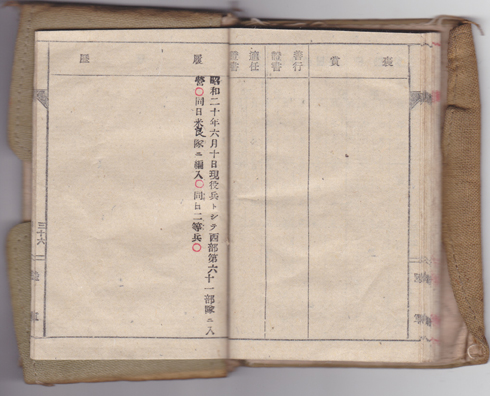 褒賞
善行證書
適任證書
履歴
昭和二十年六月十日現役兵トシテ西部第六十一部隊ニ入
營〇同日米良隊ニ編入〇同日二等兵〇
三十六